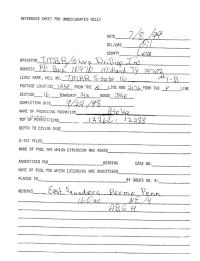 REFERENCE SHEET FOR UNDESIGNATED WELLS
DATE 7/8/99
OIL/GAS Oil
COUNTY Lea
OPERATOR TMBR/Sharp Drilling Inc
ADDRESS PO Box 10970 Midland TX 79702
LEASE NAME, WELL NO. TMBR State 16 #1-H
FOOTAGE LOCATION FROM THE LINE AND FROM THE E LINE
SECTION 16 TOWNSHIP RANGE
COMPLETION DATE 9/29/98
NAME OF PRODUCING FORMATION Atoka
TOP OF PERFORATIONS
DEPTH TO CASING SHOE
C-123 FILED
NAME OF POOL FOR WHICH EXTENSION WAS ASKED
ADVERTISED FOR HEARING CASE NO.
NAME OF POOL FOR WHICH EXTENSION WAS ADVERTISED
PLACED IN BY ORDER NO. R-
REMARKS East Saunders Permo Penn
160 ac NE/4
ABGH